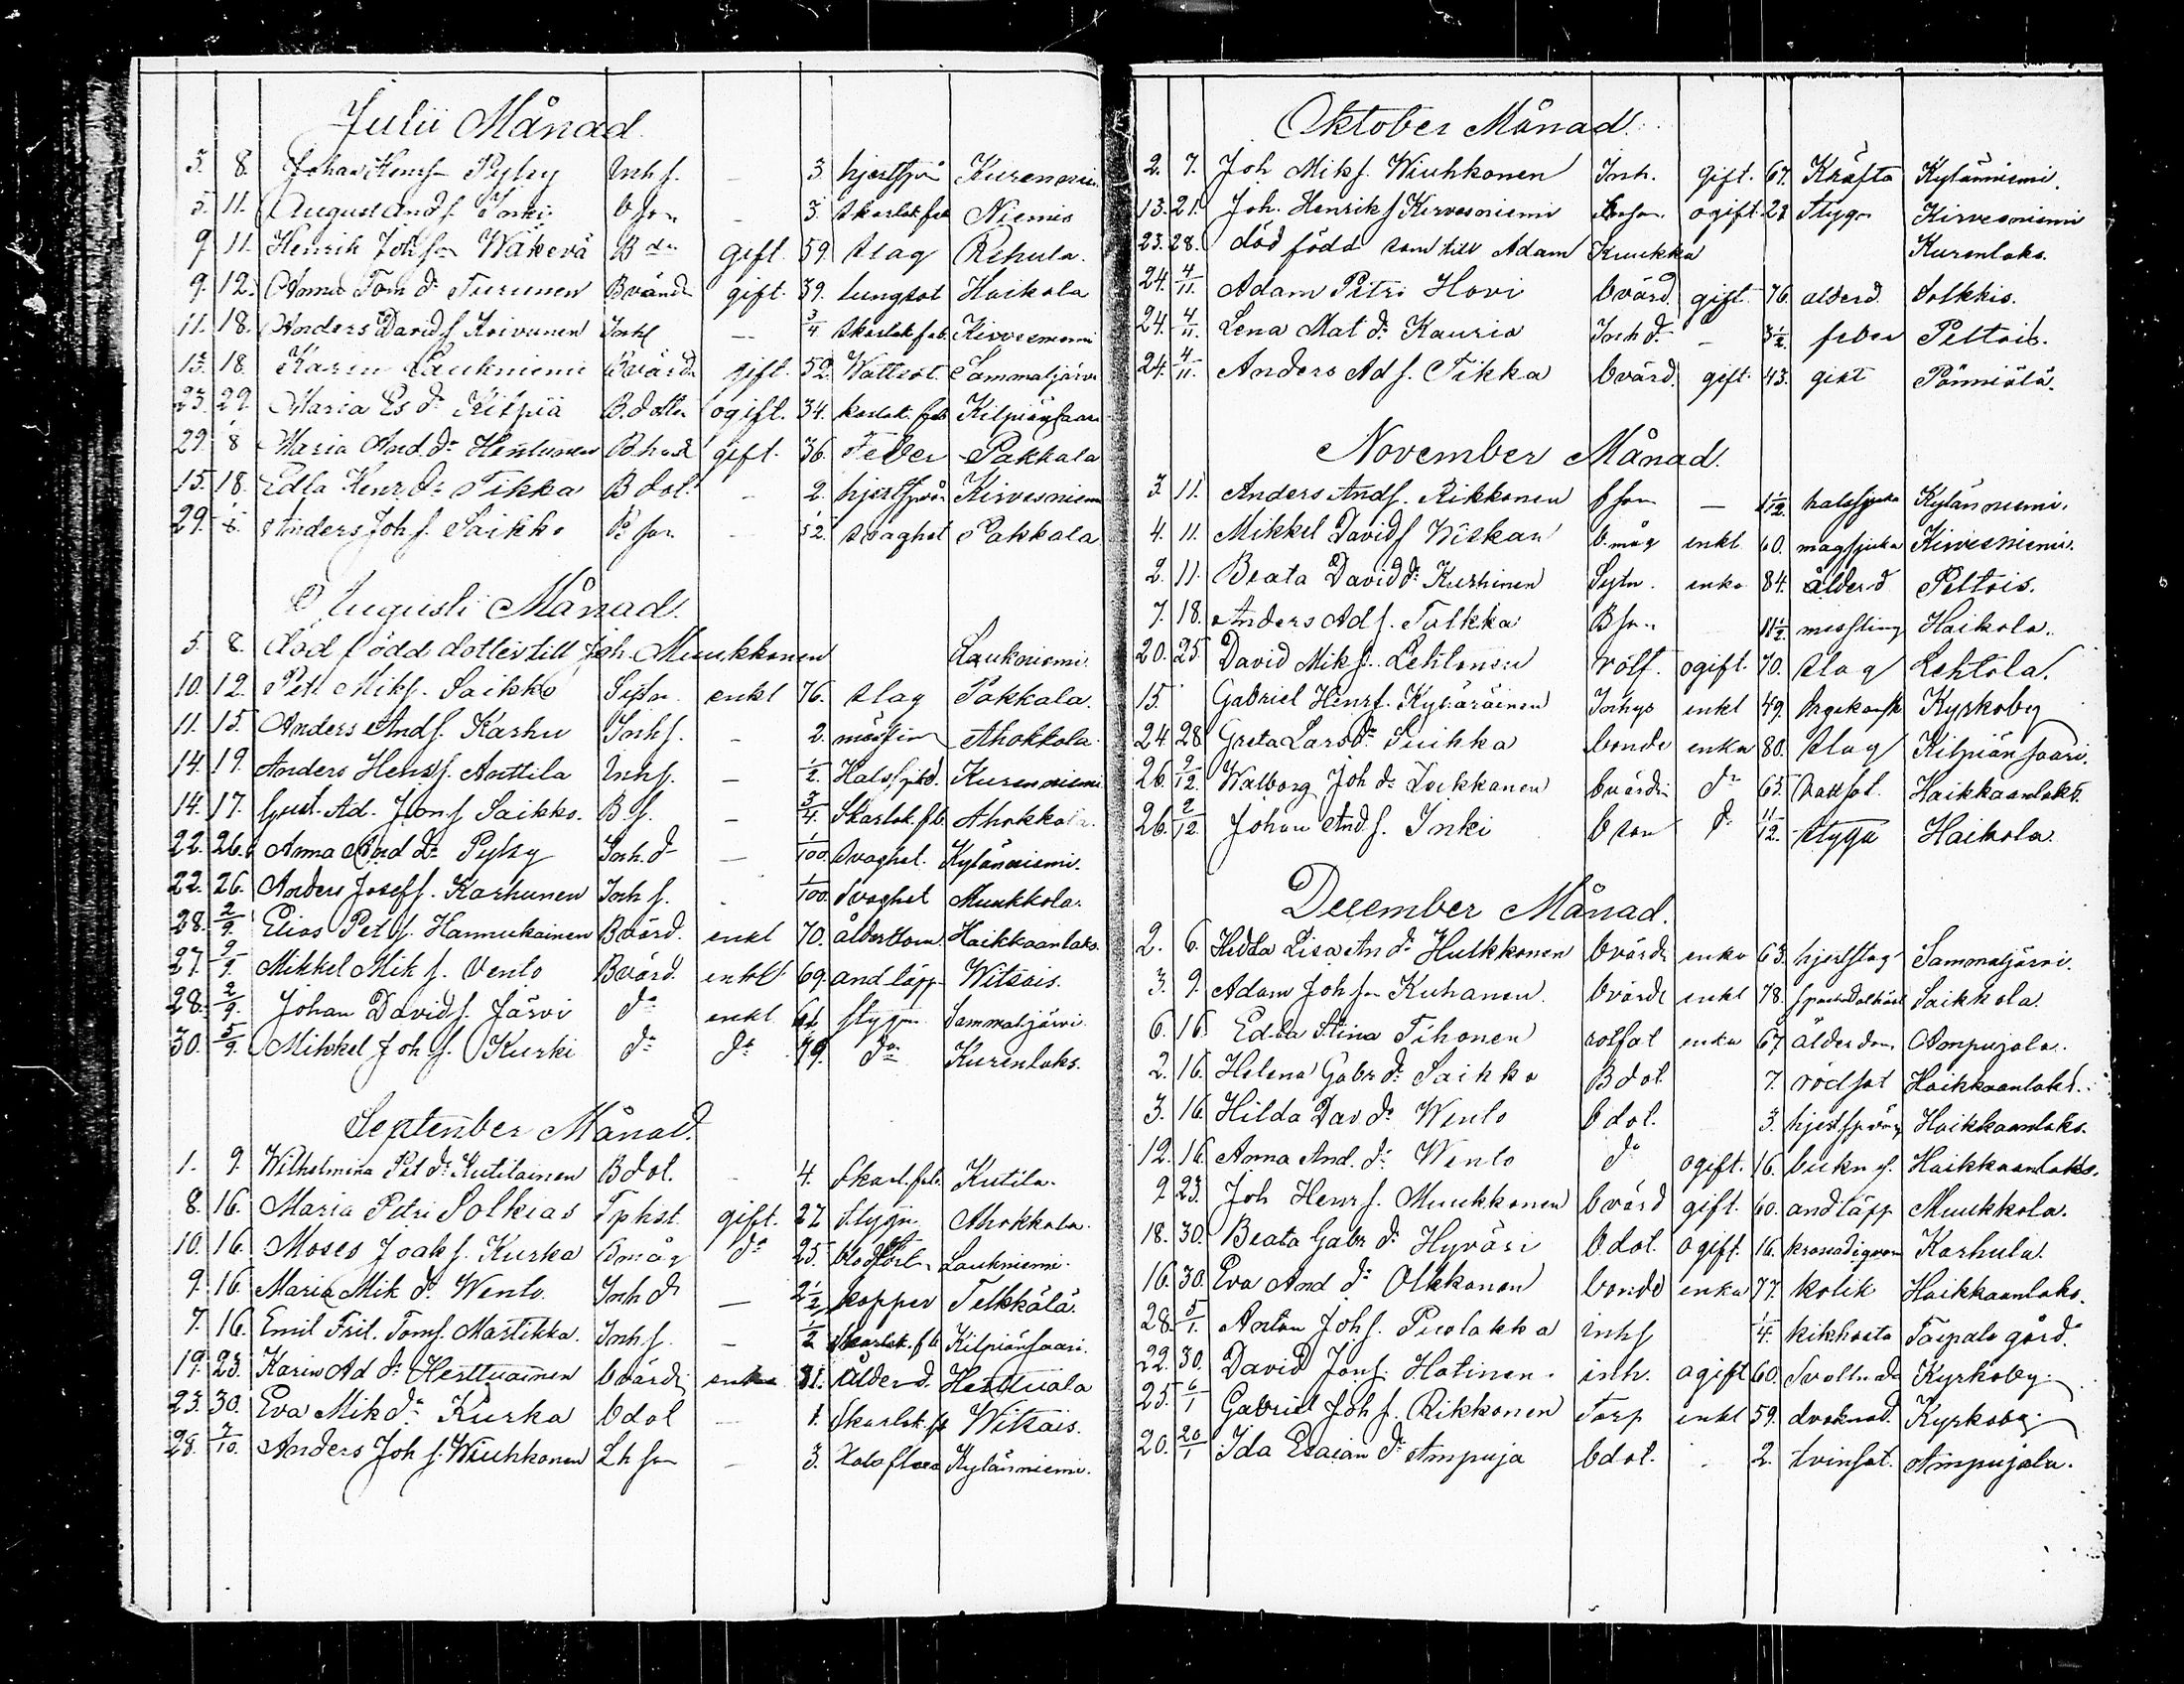 Julii Månad
5. 8. Johan Henrsn Pylsy Inh s. – 3. hjertspr. Kurenniemi
5. 11. August Ands. Inki b son – 3. Skarlak.feb Niemis
9 11. Henrik Johsn Wäkevä Bdn gift. 59. slag Rihula.
9. 12. Anna Tom dr Turunen Bvärd gift. 39. lungsot Haikola
11. 18. Anders Davids Koivunen Inhs – 3/4 Skarlak.feb. Kirvesniemi
13. 18. Karin Laukniemi Bvärd gift. 52. Wattsot Sammaljärvi
23. 29 Maria Es dr Kilpiä B.dotter ogift. 34. karlak.feb Kilpiänsaari
29. 1/8 Maria And. dr Henttunen B.hust gift. 36. Feber Pakkala
15. 18. Edla Henr dr Tikka B dot. – 2. hjertsprå Kirvesniemi
29. 1/8. Anders Joh s. Saikko B son 1/52. svaghet Pakkala
Augusti Månad.
5. 8. död född dotter till Joh. Muukkonen Laukniemi.
10. 12. Petr Miks. Saikko Sytn. enkl 76. slag Pakkala.
11. 15. Anders Ands. Karhu Inhs. – 2. mässlin Ahokkala.
14. 19. Anders Henrs. Anttila Inhs. – 1/2. Halssjukd. Kurenniemi
14. 17. Gust. Ad. Jons Saikko. B s. – 3/4. Skarlak.feb. Ahokkala.
22. 26. Anna And dr Pylsy Inh. dr – 1/100. svaghet. Kylänniemi.
22. 26. Anders Josefs. Karhunen Inh s. – 1/100. Svaghet Muukkola.
28. 2/9. Elias Pet s. Hannukainen Bvärd. enkl 70. ålderdom. Haikkaanlaks.
27. 2/9. Mikkel Mik s. Vento Bvärd. enkl 69. andtäpp Witsais.
28. 2/9. Johan Davids. Järvi do enkl 61. stygn Sammaljärvi
30. 5/9. Mikkel Joh s. Kurki do do 79. do Kurenlaks.
September Månad.
1. 9. Wilhelmina Pet dr Kutilainen Bdot. – 4. Skarl.feb. Kutila.
8. 16. Maria Petri Solkias Tphst. gift. 27 Stygn Ahokkala.
10. 16. Moses Joaks. Kurka Bmåg do 25. blodstört. Laukniemi.
9. 16. Maria Mik dr Wento. Inh dr – 2 1/2 koppor Telkkälä.
7. 16. Emil Fril. Toms. Martikka. Inhs. – 1/2 Skarlak.feb Kilpiänsaari.
19. 23. Karin Ad dr Herttuainen bvärdi enka 81. Ålderd. Herttuala
23. 30. Eva Mik dr Kurka bdot – 1. Skarlak.feb Witsais.
28. 7/10. Anders Joh s. Wiuhkonen Lh son – 3. Halsflus Kylänniemi.
Oktober Månad.
2. 7. Joh Miks. Wiuhkonen Inh. gift. 67. Kräfta Kylänniemi.
13. 21. Joh. Henriks Kirvesniemi bnson. ogift. 23 Stygn Kirvesniemi
23. 28. död född son till Adam Kuukka Kurenlaks.
24. 4/11. Adam Petri Hovi bvärd. gift. 76. alderd. Solkkis.
24. 4/11. Lena Mat dr Kauria Inh dr – 3 1/2. feber Peltois.
24. 4/11. Anders Ad s. Tikka bvärd. gift. 43. gikt Pänniälä.
November Månad.
3. 11. Anders Ands. Rikkonen bson – 1 1/2. halssjuka Kylänniemi.
4. 11. Mikkel Davids Wiskari b.måg enkl 60. magsjuka Kirvesniemi.
2. 11. Beata David dr Kurhinen Sytn. enka 84. ålderd Peltois.
7. 18. Anders Ad s. Tulkka Bson. 11 1/2 messling Haikola.
20. 25. David Miks. Lehtonen rotf. ogift. 70. slag Lehtola.
15. Gabriel Henrs. Kyläräinen Inhys enkl 49. Kyrkoby
24. 28. Greta Lars dr Suikka bonde enka 80. slag Kilpiänsaari.
26. 2/12. Walborg Joh dr Loikkanen bvärdi do 65. Wattsot. Haikkaanlaks.
26. 2/12. Johan And s. Inki b son do 11/12. stygn Haikola.
December Månad.
2. 6. Hedda Lisa An dr Hulkkonen bvärdi enka 63. hjertslag Sammaljärvi.
3. 9. Adam Joh sn Kuhanen. bvärdi enkl 78. Saikkola.
6. 16. Edla Stina Tihonen rotfat enka 67 ålderdom Ampujala.
2. 16. Helena Gabr dr Saikko B dot 7. rödsot Haikkaanlaks.
3. 16. Hilda Dav. dr Wento b dot. 3. hjertsprång Haikkaanlaks.
12. 16. Anna And. dr Wento do ogift. 16. Haikkaanlaks.
9. 23. Joh Henrs. Muukkonen bvärd gift. 60. andtäpp Muukkola.
18. 30. Beata Gabr dr Hyväri bdot. ogift. 16. Karhula.
16. 30. Eva And dr Olkkonen bonde enka 77. kolik Haikkaanlaks.
28. 5/1. Anton Johs. Puolakka inhs 1/4. kikhosta Taipale gård.
22. 30. David Jons. Hatinen. inh. ogift 60. Svullnad Kyrkoby.
25. 6/1 Gabriel Joh s. Rikkonen Torp enkl 59. drunknad. Kyrkoby.
20. 20/1 Ida Esaian dr Ampuja bdot. – 2. tvinsot. Ampujala.